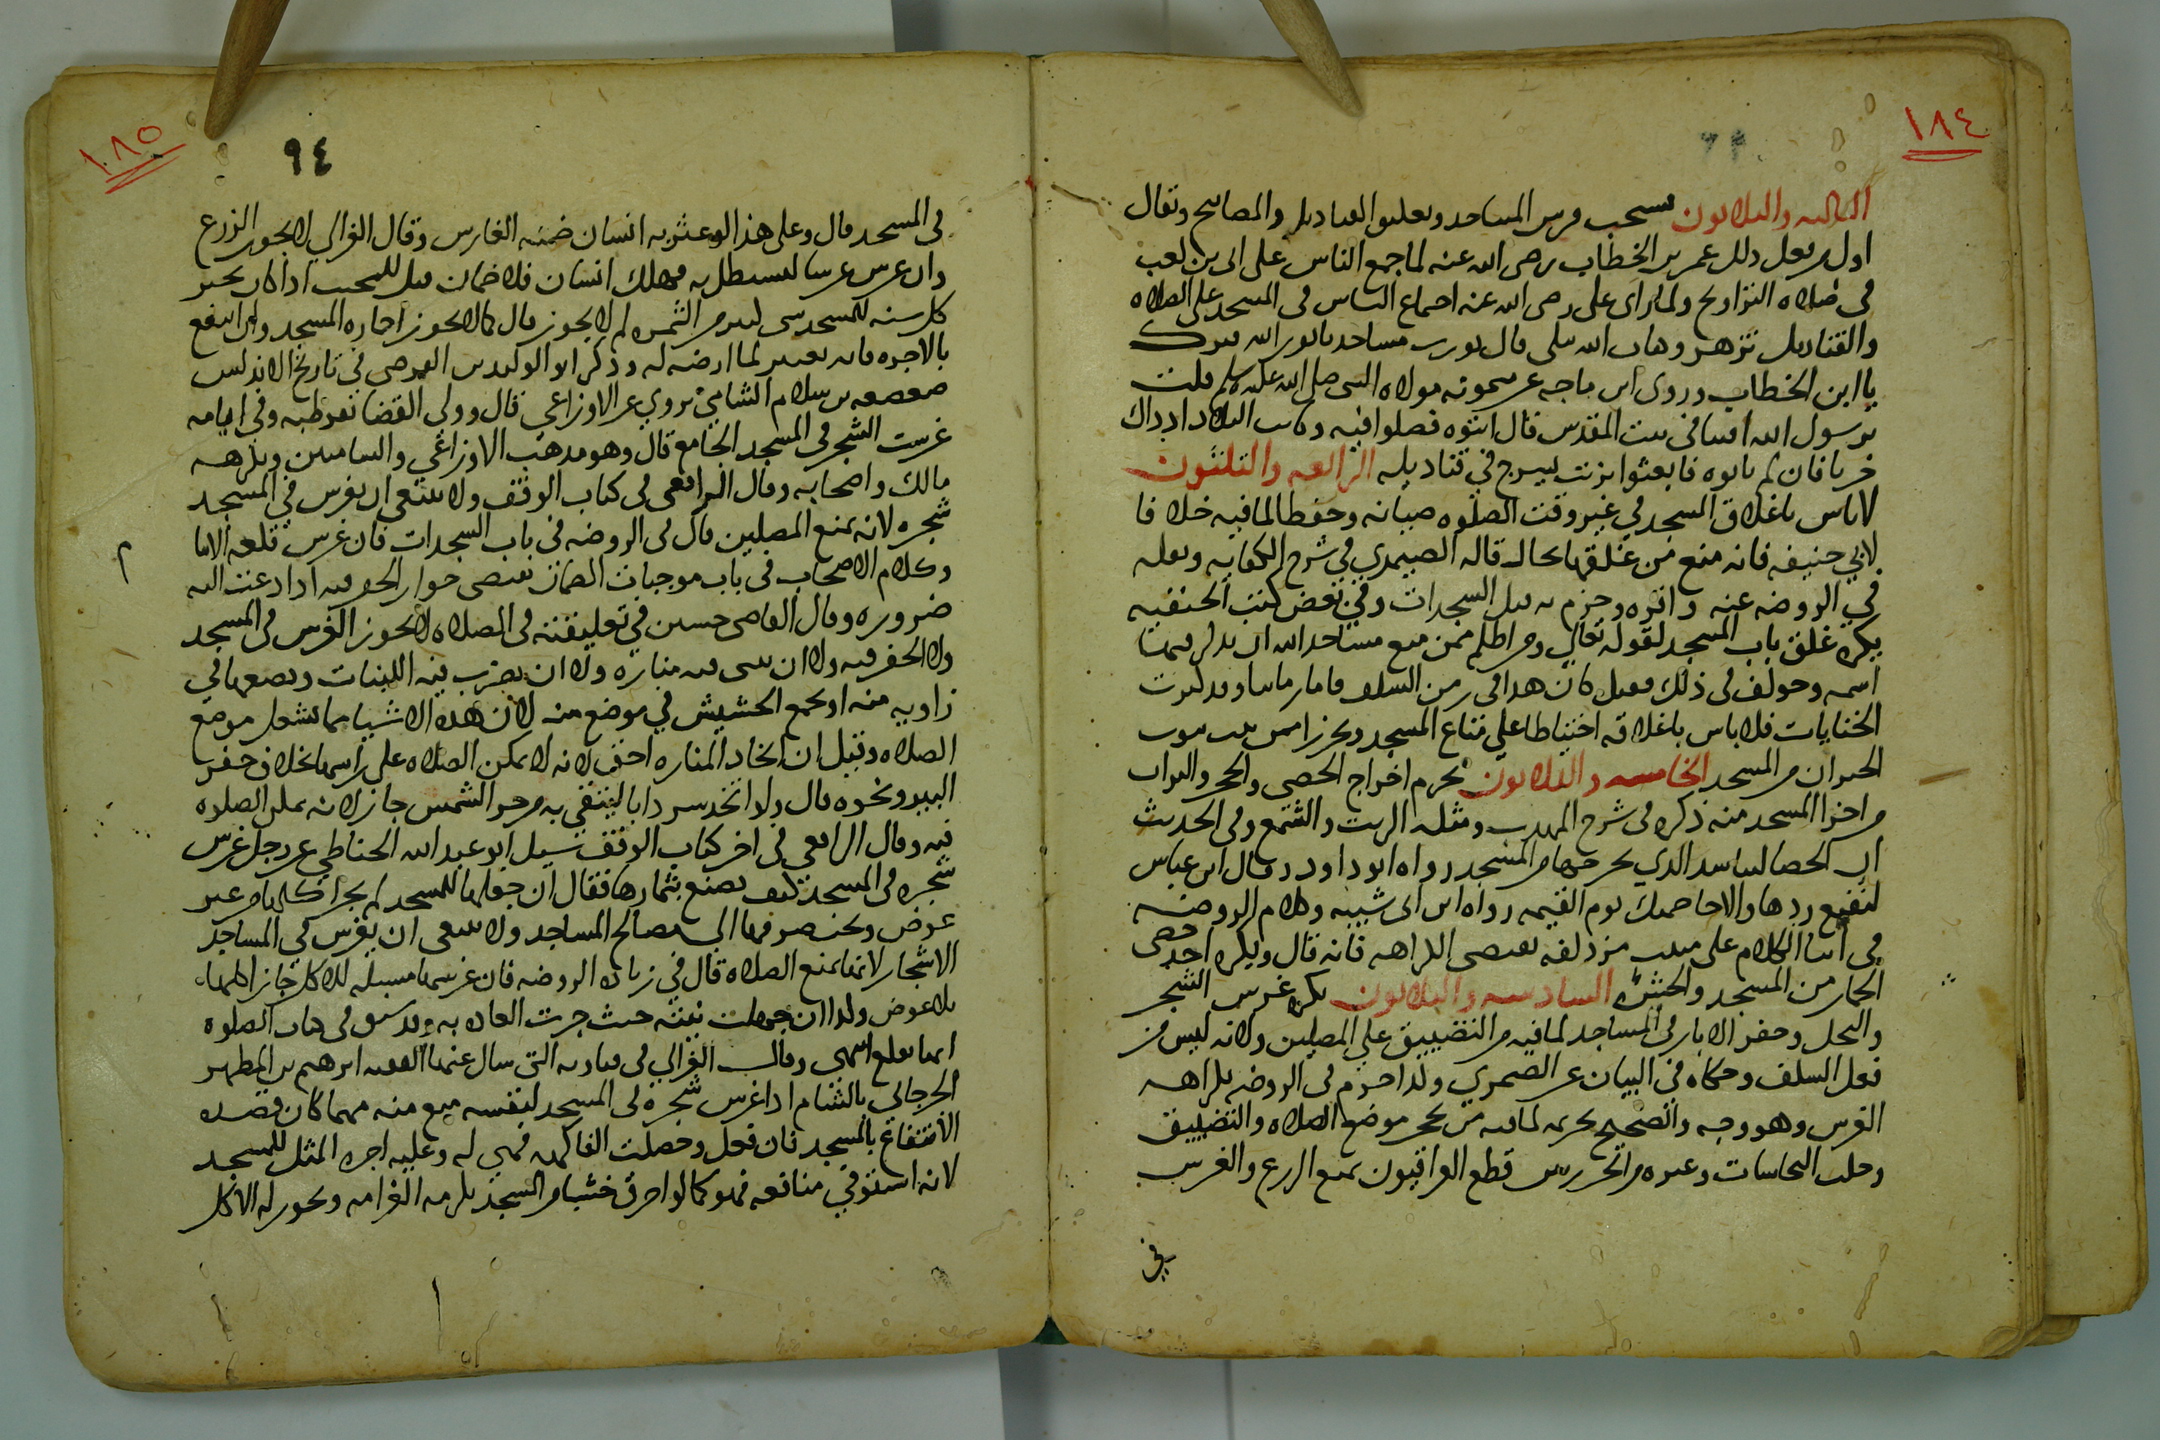 ١٨٤
الثالثه والثلاثون يستحب فرش المساجد وتعليق القناديل والمصابيح ويقال
اول من فعل ذلك عمر بن الخطاب رضى الله عنه لما جمع الناس على ابى بن كعب
فى صلاه التراويح ولما راى على رضى الله عنه اجتماع الناس فى المسجد على الصلاه
والقناديل تزهر وكتاب الله يتلى قال نورت مساجدنا نور الله قبرك
يا ابن الخطاب وروى ابن ماجه عن ميمونه مولاه النبى صلى الله عليه وسلم قلت
يرسول الله افتنا فى بيت المقدس قال ايتوه فصلوا فيه وكانت البلاد اذ ذاك
خربا فان لم تاتوه فابعثوا بزيت يسرج في قناديله الرابعه والثلثون
لاباس باغلاق المسجد في غير وقت الصلوه صيانه وحفظا لما فيه خلافا
لابي حنيفه فانه منع من غلقها بحال قاله الصيمري في شرح الكفايه ونقله
في الروضه عنه واقره وجزم به قبل السجدات وفي بعض كتب الحنفيه
يكره غلق باب المسجد لقوله تعالي ومن اظلم ممن منع مساجد الله ان يذكر فيها
اسمه وخولف فى ذلك فقيل كان هذا فى زمن السلف فاما زماننا وقد كثرت
الجنايات فلا باس باغلاقه احتياطا علي متاع المسجد وتحرزا من نقب بيوت
الجيران من المسجد الخامسه والثلاثون يحرم اخراج الحصى والحجر والتراب
من اجزا المسجد منه ذكره فى شرح المهذب ومثله الزيت والشمع وفى الحديث
ان الحصا ليناشد الذي يخرجها من المسجد رواه ابو داود وقال ابن عباس
لنفيع ردها والا خاصمتك يوم القيمه رواه ابن ابى شيبه وكلام الروضه
فى اثنا الكلام على مبيت مزدلفه يقتضى الكراهه فانه قال ويكره اخذ حصى
الجمار من المسجد والحش السادسه والثلاثون يكره غرس الشجر
والنخل وحفر الابار فى المساجد لما فيه من التضييق علي المصلين ولانه ليس من
فعل السلف وحكاه في البيان عن الصيمري ولذا جزم فى الروضه بكراهه
الغرس وهو وجه والصحيح تحريمه لما فيه من تحجر موضع الصلاه والتضييق
وجلب النجاسات وغيره قطع العراقيون بمنع الزرع والغرس
في
١٨٥
٩٤
فى المسجد قال وعلى هذا لو عثر به انسان ضمنه الغارس وقال الغزالي لا يجوز الزرع
وان غرس غرسا ليستظل به فهلك انسان فلا ضمان
بالاجره وذكر ابو الوليد بن الفرضى في تاريخ الاندلس
صعصعه بن سلام الشامي يروي عن الاوزاعي قال وولي القضا بقرطبه وفي ايامه
غرست الشجر فى المسجد الجامع قال وهو مذهب الاوزاعي والشاميين ويكرهه
مالك واصحابه وقال الرافعى فى كتاب الوقف ولا ينبغى ان يغرس في المسجد
شجره لانه يمنع المصلين قال فى الروضه فى باب السجدات فان غرس قلعه الامام
وكلام الاصحاب فى باب موجبات الضمان يقتضى جواز الحفر فيه اذا دعت اليه
ضروره وقال القاضى حسين في تعليقته فى الصلاه لا يجوز الغرس فى المسجد
ولا الحفر فيه ولا ان يبنى فيه مناره ولا ان يضرب فيه اللبنات ويضعها في
زاويه منه او يجمع الحشيش في موضع منه لان هذه الاشيا مما تشغل موضع
الصلاه وقيل ان اتخاذ المناره اخف لانه لا يمكن الصلاه علي راسها بخلاف حفر
البير ونحوه قال ولو اتخذ سردابا ليتقي به من حر الشمس جاز لانه يمكن الصلوه
فيه وقال الرافعى فى اخر كتاب الوقف سيل ابو عبد الله الحناطي عن رجل غرس
شجره فى المسجد كيف يصنع بثمارها فقال ان جعلها للمسجد لم يجز اكلها من غير
عوض ويجب صرفها الى مصالح المساجد ولا ينبغى ان يغرس في المساجد
الاشجار لانها تمنع الصلاه قال في زياده الروضه فان غرسها مسبله للاكل جاز اكلها
بلا عوض وكذا ان جهلت نيته حيث جرت العاده به وقد سبق فى باب الصلوه
انها تقلع انتهى وقال الغزالي في فتاويه التى سال عنها الفقيه ابرهيم بن المطهر
الجرجاني بالشام اذا غرس شجره فى المسجد لنفسه منع منه مهما كان قصده
الانتفاع بالمسجد فان فعل وحصلت الفاكهه فهي له وعليه اجره المثل للمسجد
لانه استوفي منافعه فهو كما لو احرق خشبا من المسجد يلزمه الغرامه ويجوز له الاكل